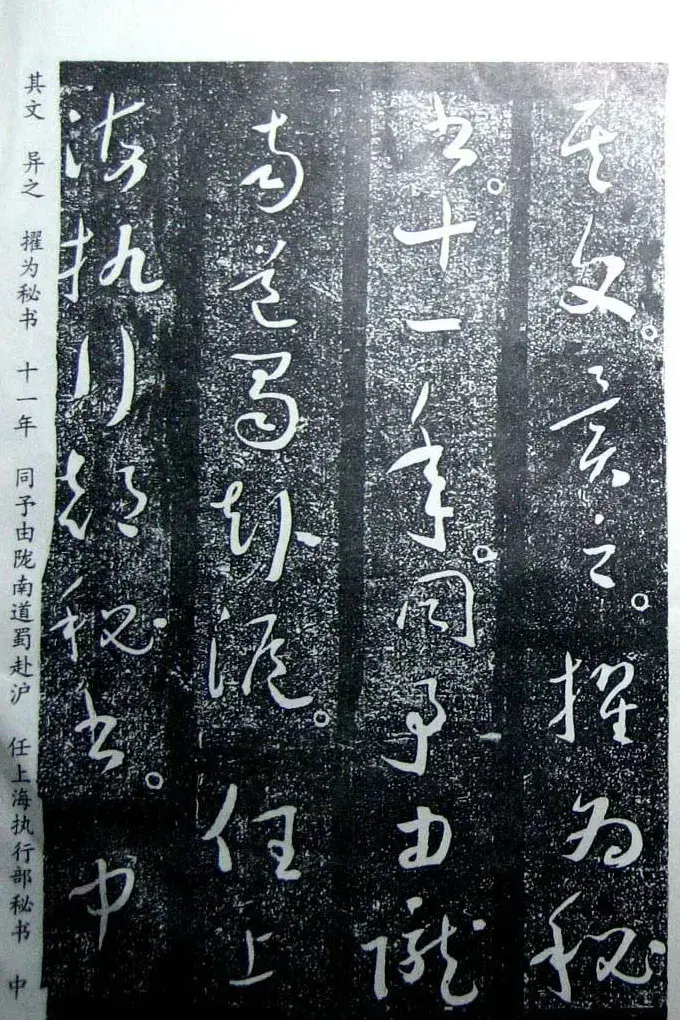 其文。异之。擢为秘
书。十一年。同予由陇
南道蜀赴沪。任上
海执行部秘书。中
其文 异之 擢为秘书 十一年 同予由陇南道蜀赴沪 任上海执行部秘书 中